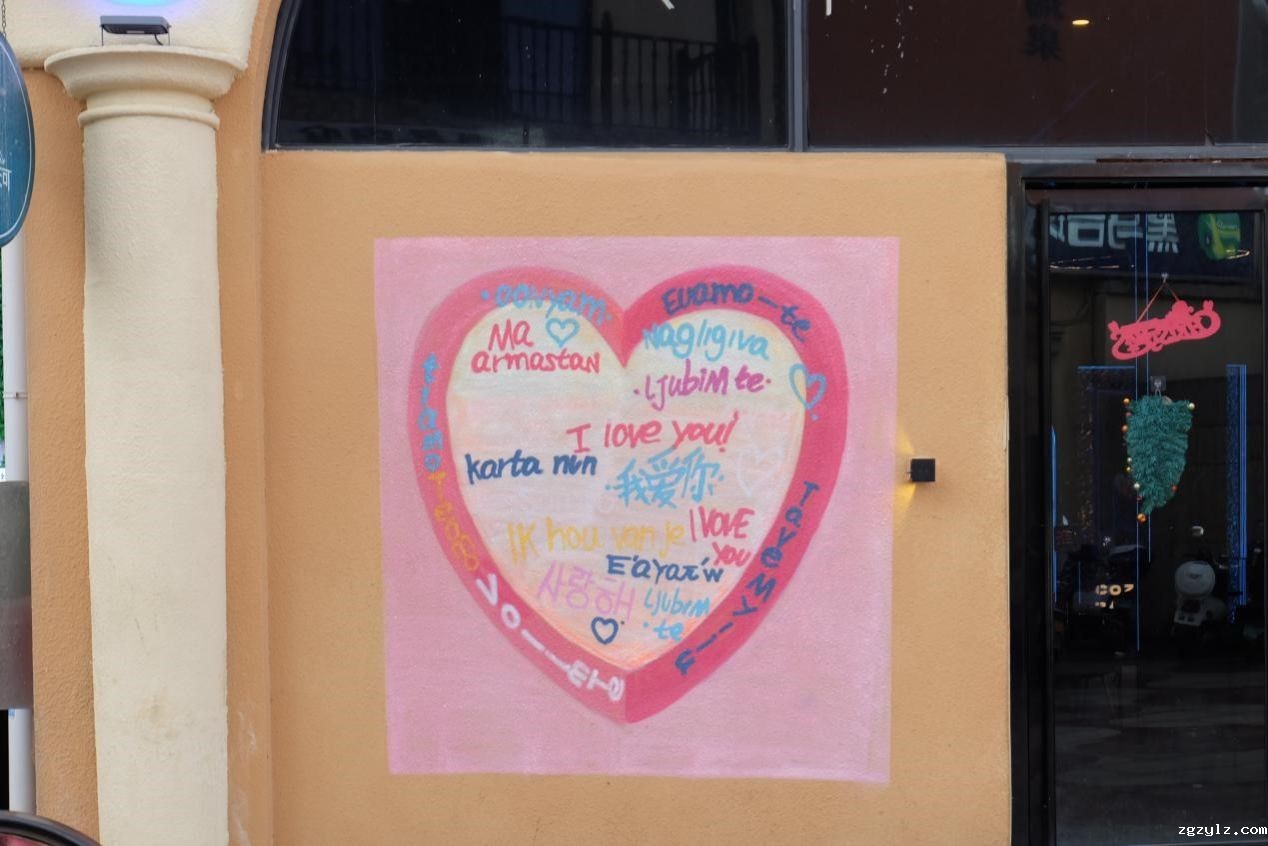 aovyam
Euamo-te
Ma
armastan
Nagligiva
ljubim te
tiamo
I love you!
karta nin
我爱你
IK hou van je
I love
you
Σ'αγαπώ
사랑해
ljubim
te
zgzylz.com